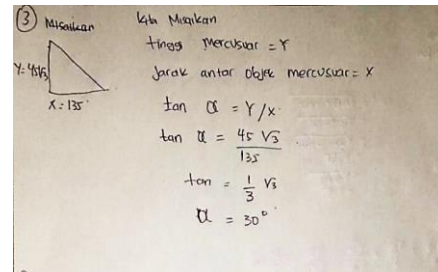 ③ Misalkan
Kita Misalkan
tinggi Mercusuar = Y
Jarak antar objek mercusuar = X
Y = 45√3
X = 135
tan α = Y/X
tan α = 45 √3 / 135
tan = 1/3 √3
α = 30°